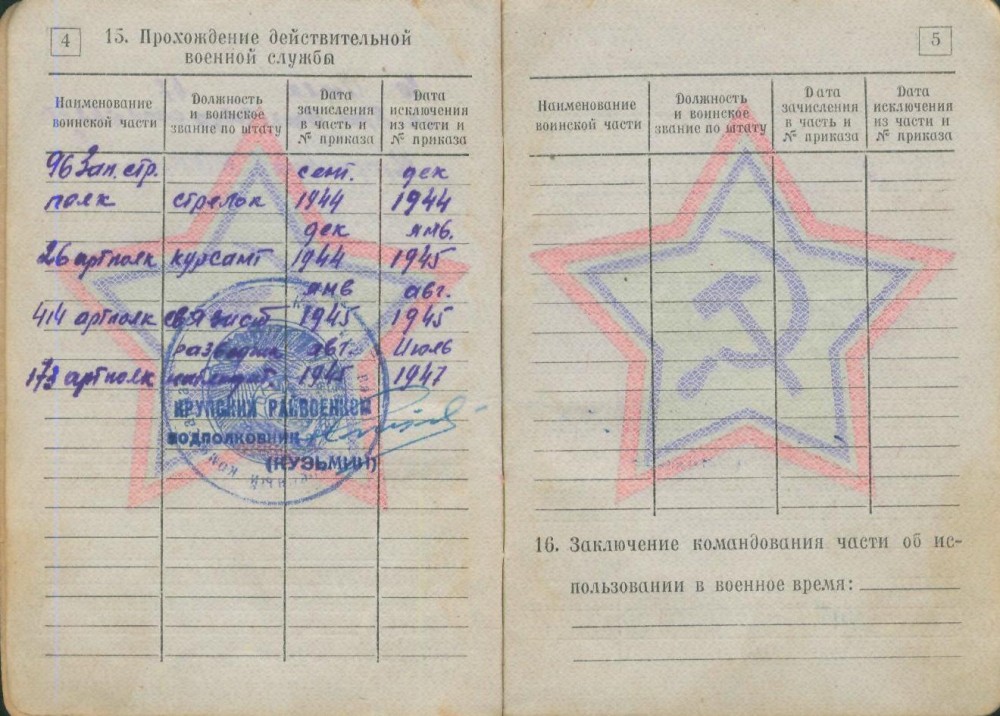 4
15. Прохождение действительной
военной службы
Наименование
воинской части
Должность
и воинское
звание по штату
Дата
зачисления
в часть и
№ приказа
Дата
исключения
из части и
№ приказа
96 зап. стр. сент. дек
полк стрелок 1944 1944
дек янв.
26 артполк курсант 1944 1945
янв авг.
414 артполк связист 1945 1945
разведчик авг. Июль
173 артполк 1945 1947
КРУПСКИЙ РАЙВОЕНКОМ
ПОДПОЛКОВНИК
(КУЗЬМИН)
5
Наименование
воинской части
Должность
и воинское
звание по штату
Дата
зачисления
в часть и
№ приказа
Дата
исключения
из части и
№ приказа
16. Заключение командования части об ис-
пользовании в военное время: